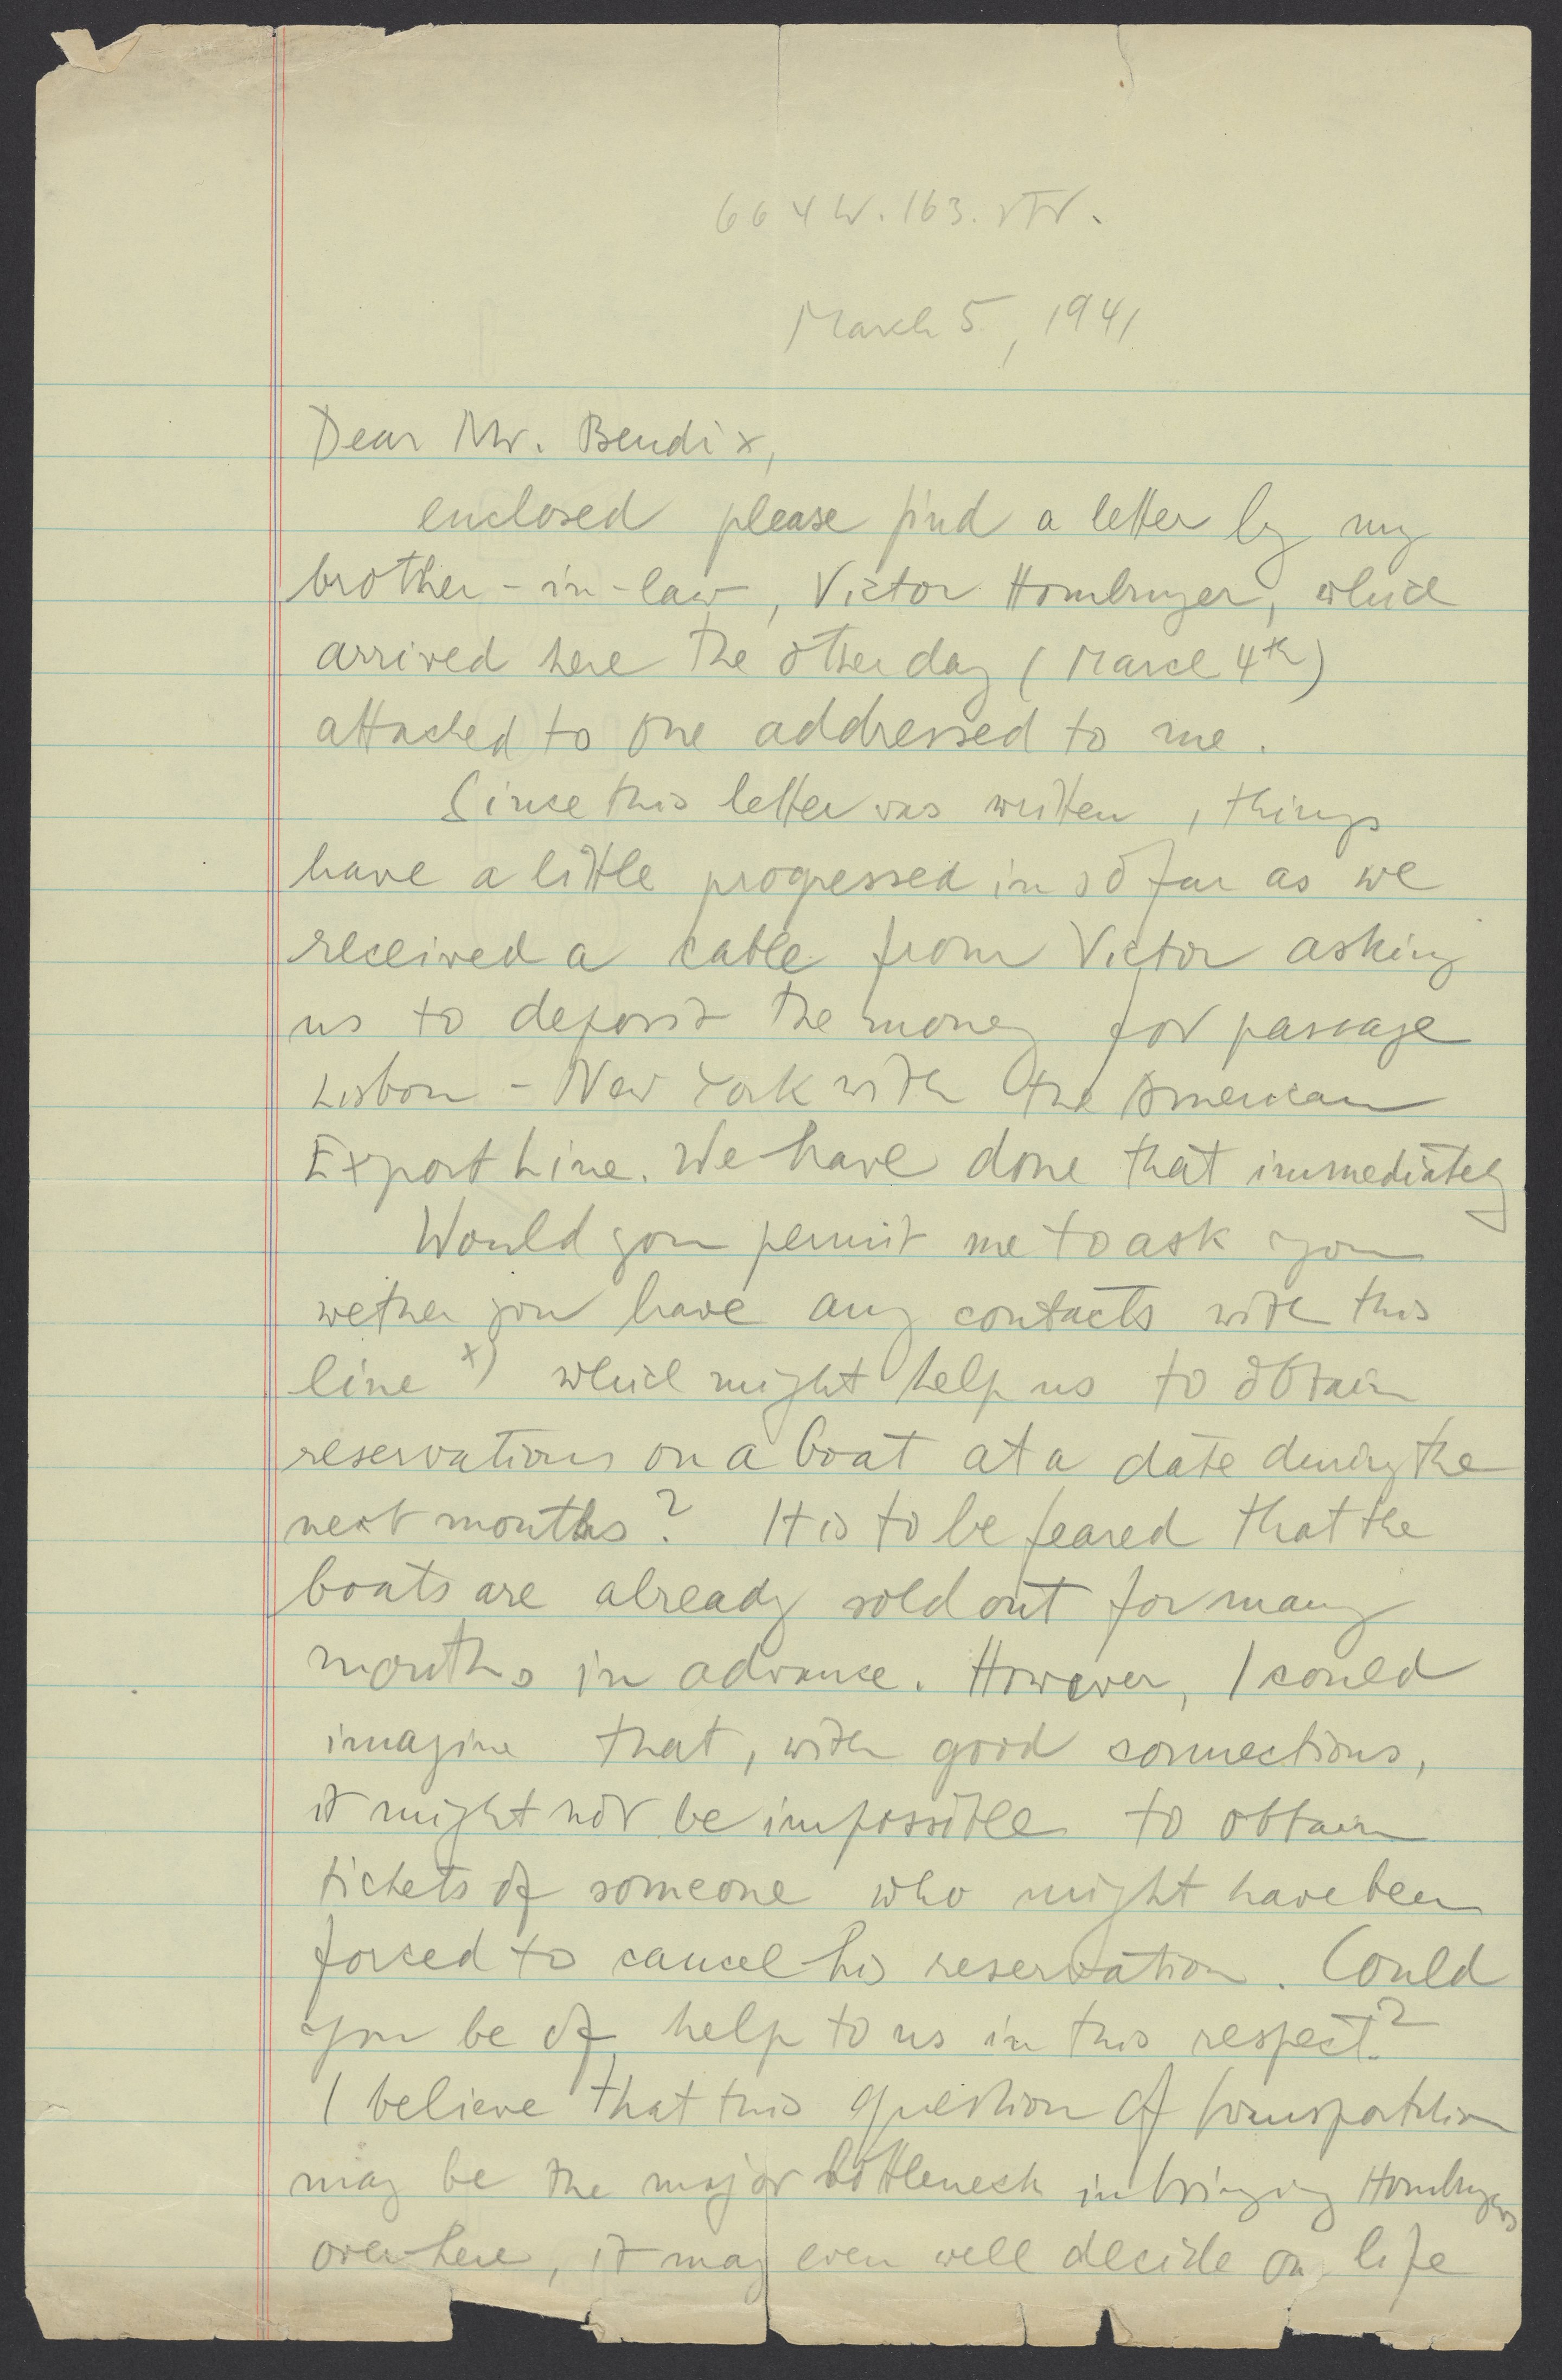 664 W. 163. str.
March 5, 1941
Dear Mr. Bendix,
enclosed please find a letter by my
brother-in-law, Victor Homburger, which
arrived here the other day (March 4th)
attached to one addressed to me.
Since this letter was written, things
have a little progressed in so far as we
received a cable from Victor asking
us to deposit the money for passage
Lisbon - New York with the American
Export Line. We have done that immediately
Would you permit me to ask you
wether you have any contacts with this
line x) which might help us to obtain
reservations on a boat at a date during the
next months? It is to be feared that the
boats are already sold out for many
months in advance. However, I could
imagine that, with good connections,
it might not be impossible to obtain
tickets of someone who might have been
forced to cancel his reservation. Could
you be of help to us in this respect?
I believe that this question of transportation
may be the major bottleneck in bringing Homburgers
over here, it may even well decide on life